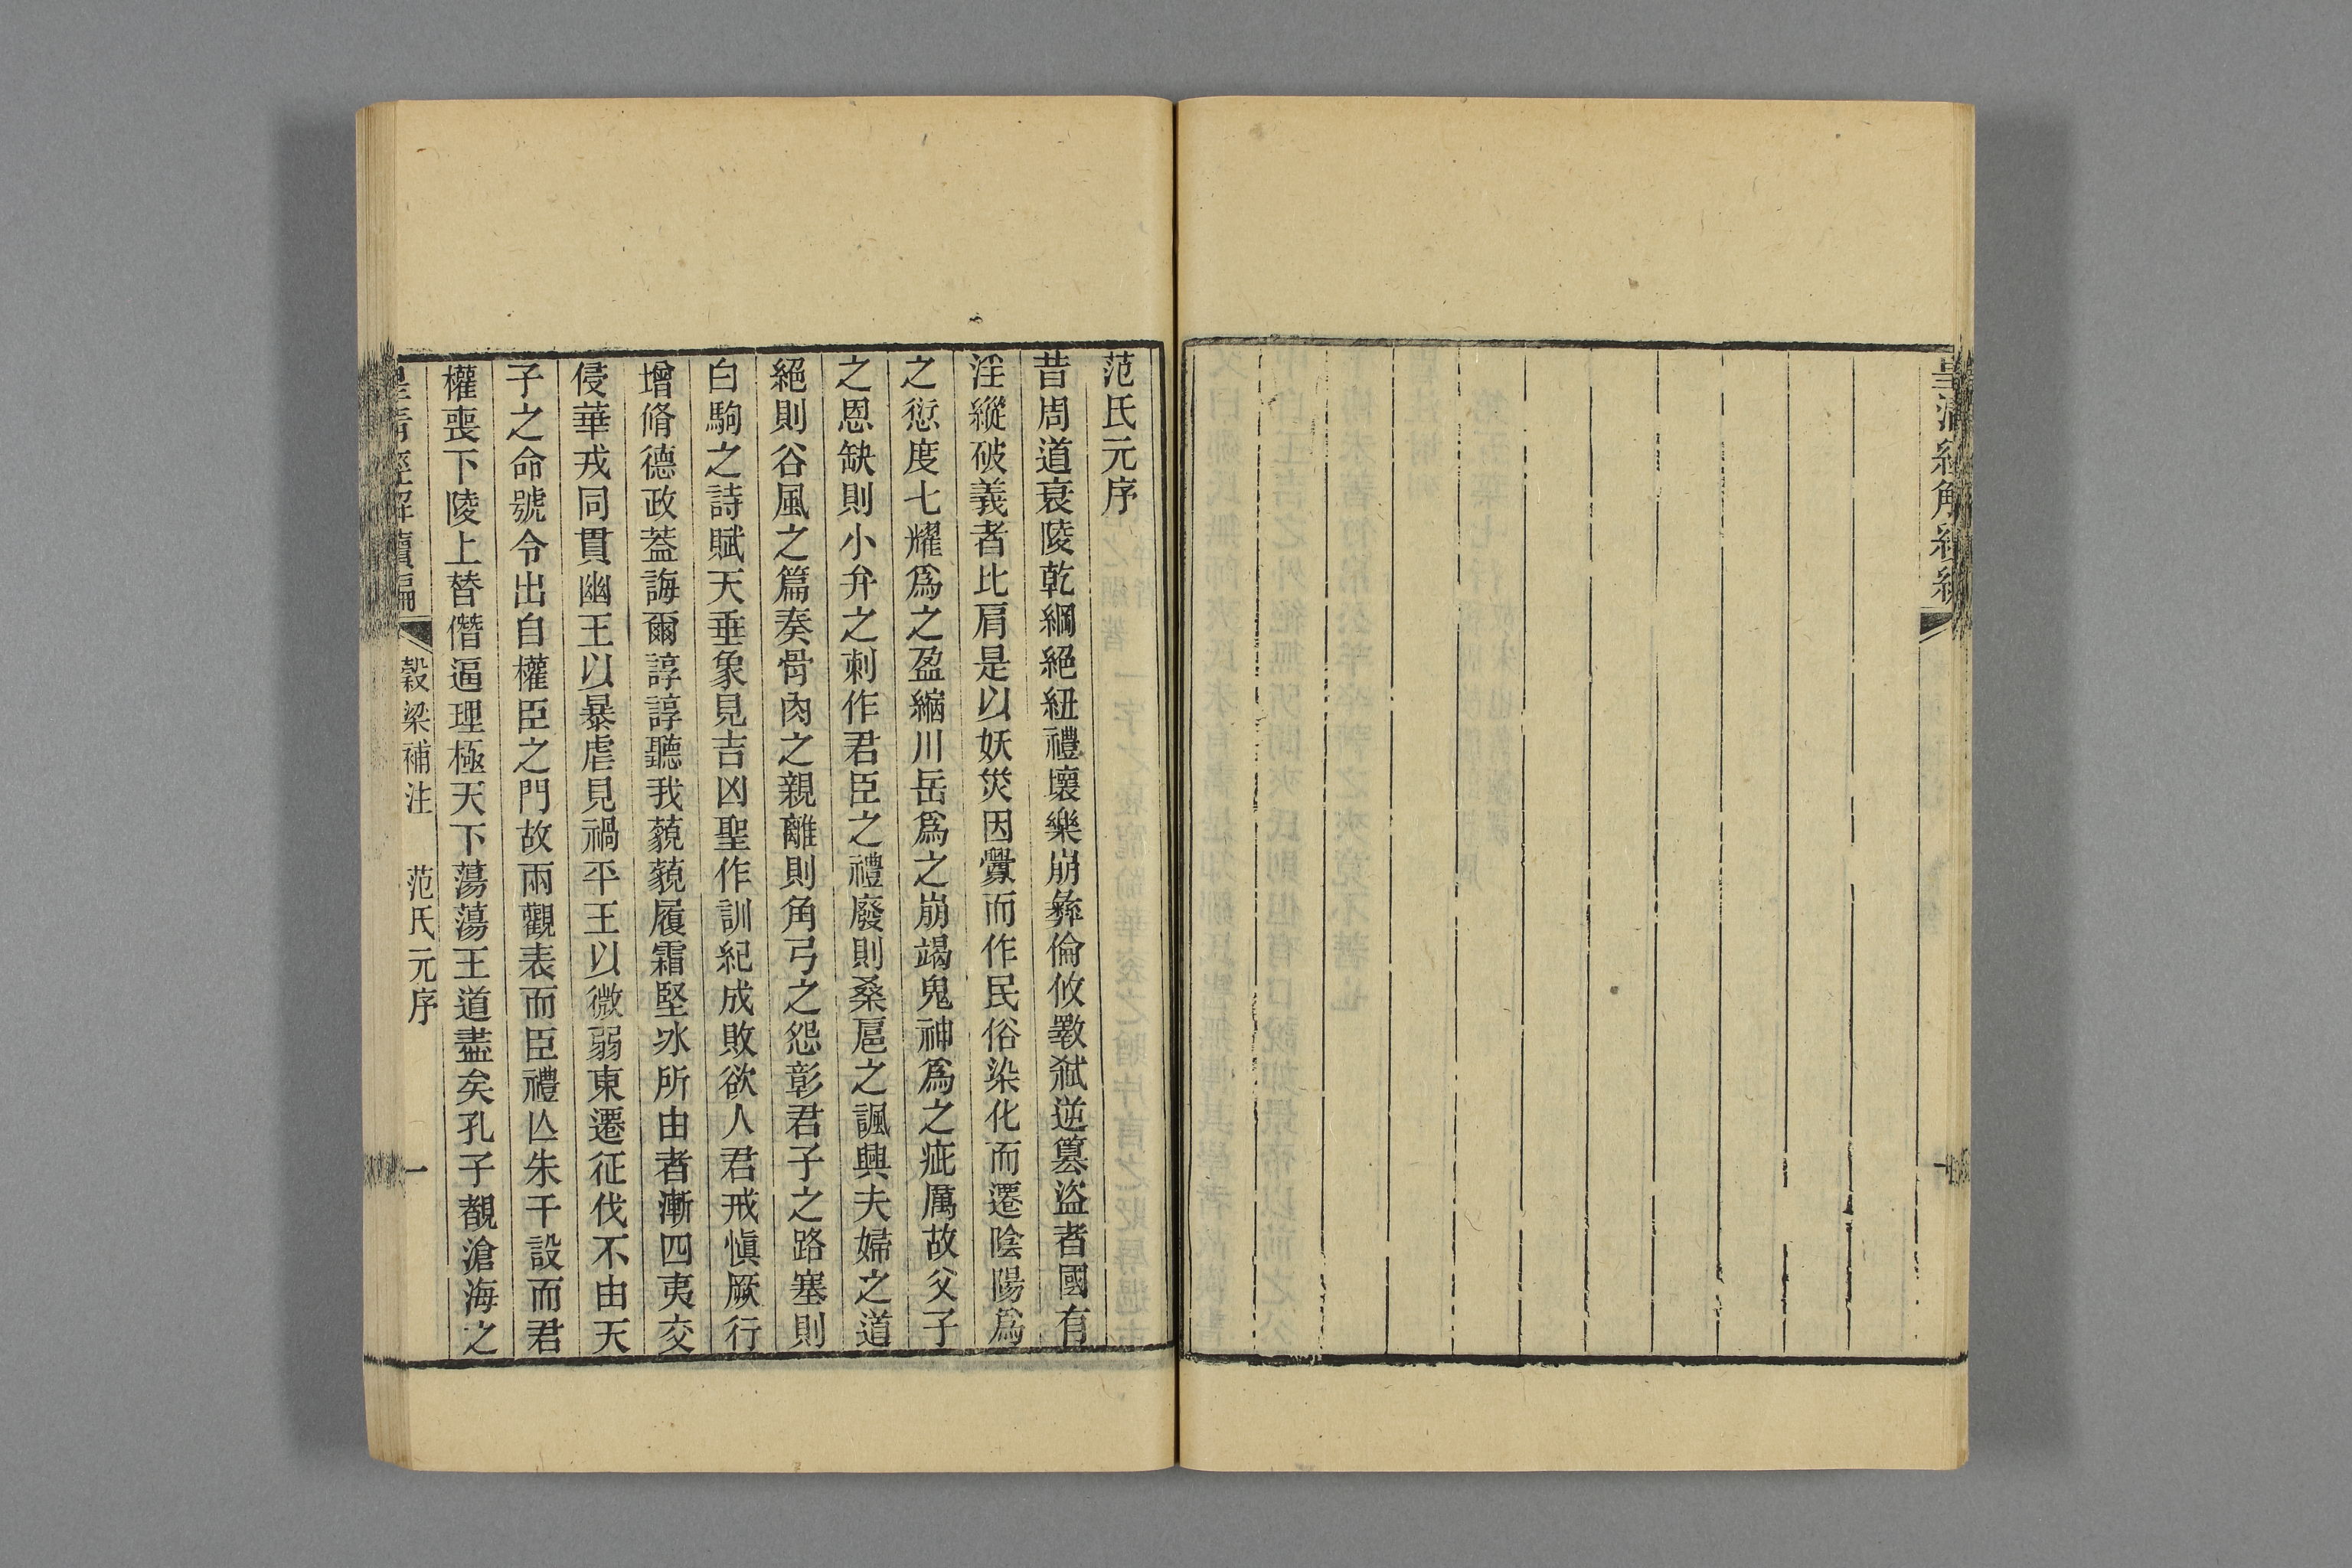 皇清經解續編
范氏元序
昔周道衰陵乾綱絕紐禮壞樂崩彝倫攸斁弑逆篡盜者國有
淫縱破義者比肩是以妖災因釁而作民俗染化而遷陰陽爲
之愆度七耀爲之盈縮川岳爲之崩竭鬼神爲之疵厲故父子
之恩缺則小弁之刺作君臣之禮廢則桑扈之諷興夫婦之道
絕則谷風之篇奏骨肉之親離則角弓之怨彰君子之路塞則
白駒之詩賦天垂象見吉凶聖作訓紀成敗欲人君戒慎厥行
增脩德政蓋誨爾諄諄聽我藐藐履霜堅冰所由者漸四夷交
侵華戎同貫幽王以暴虐見禍平王以微弱東遷征伐不由天
子之命號令出自權臣之門故兩觀表而臣禮亾朱干設而君
權喪下陵上替僭逼理極天下蕩蕩王道盡矣孔子覩滄海之
皇清經解續編 穀梁補注 范氏元序 一